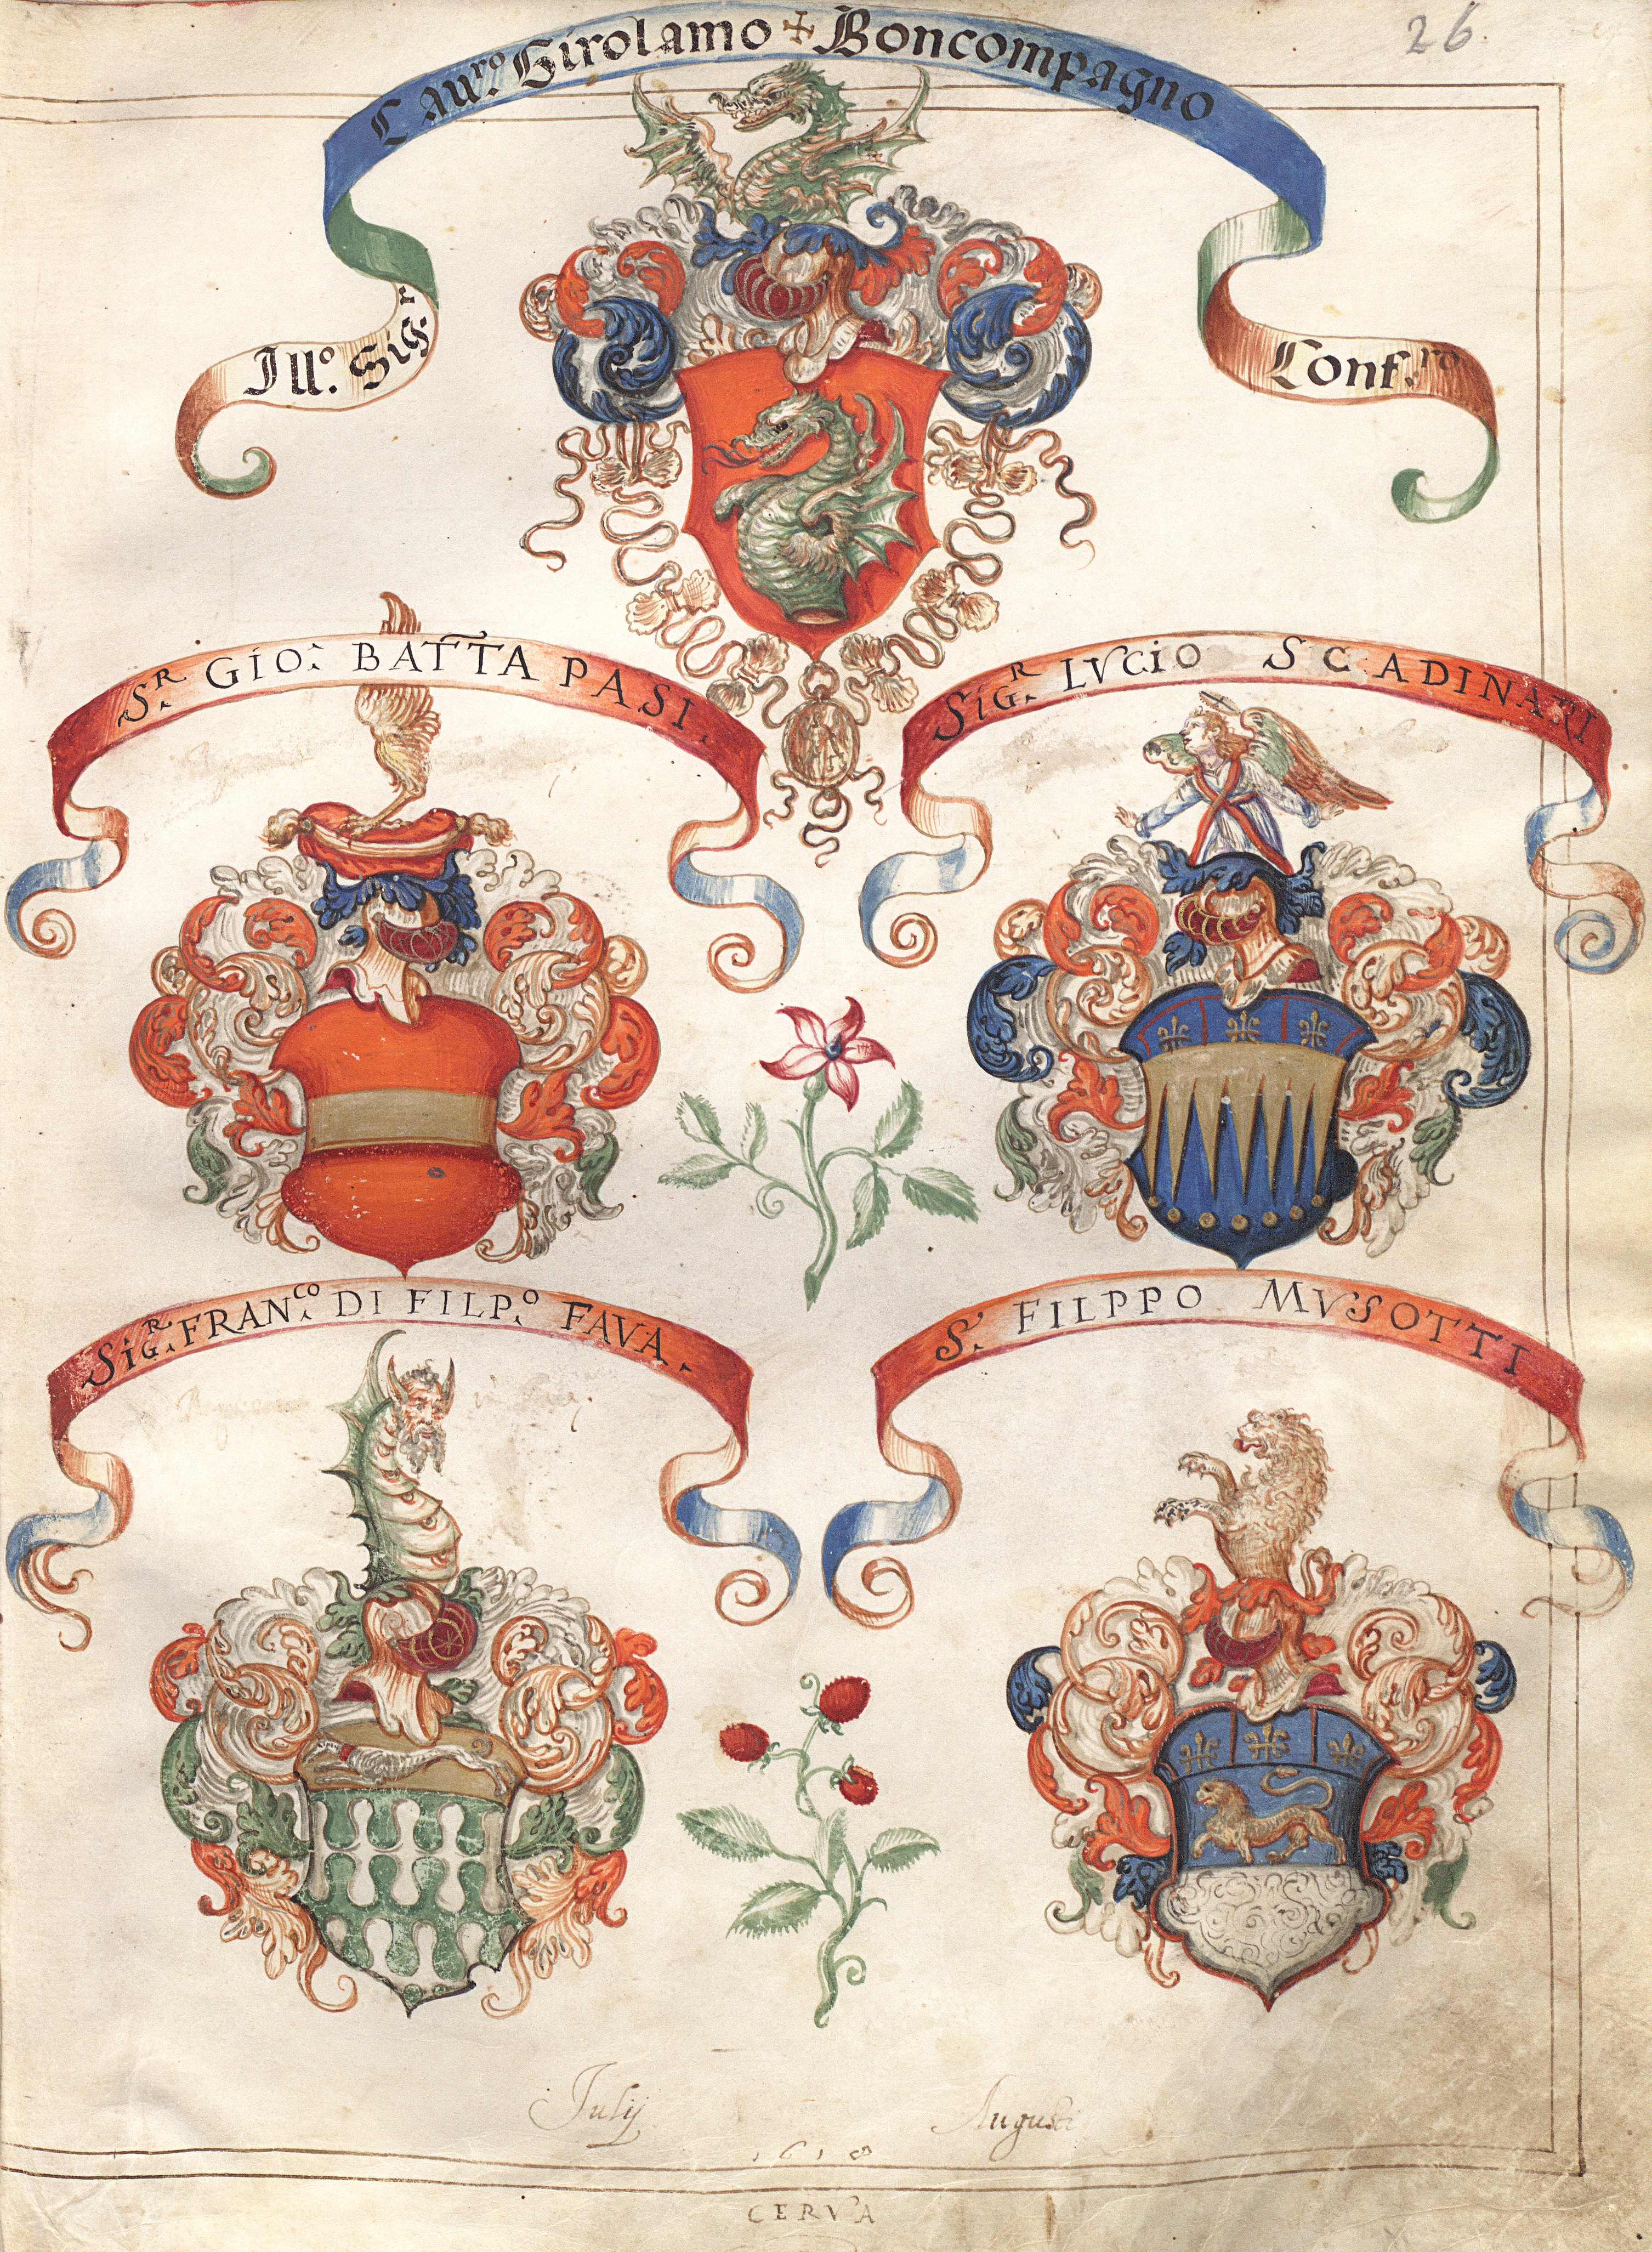 26
Illo. Sigr. Cavro. Girolamo + Boncompagno Conf.ro
Sr. GIO: BATTA PASI.
SIGR. LVCIO SCADINARI
SIGR. FRANCO. DI FILP.o FAVA.
S. FILPPO MVSOTTI
Julij Augusti
1618
CERVA